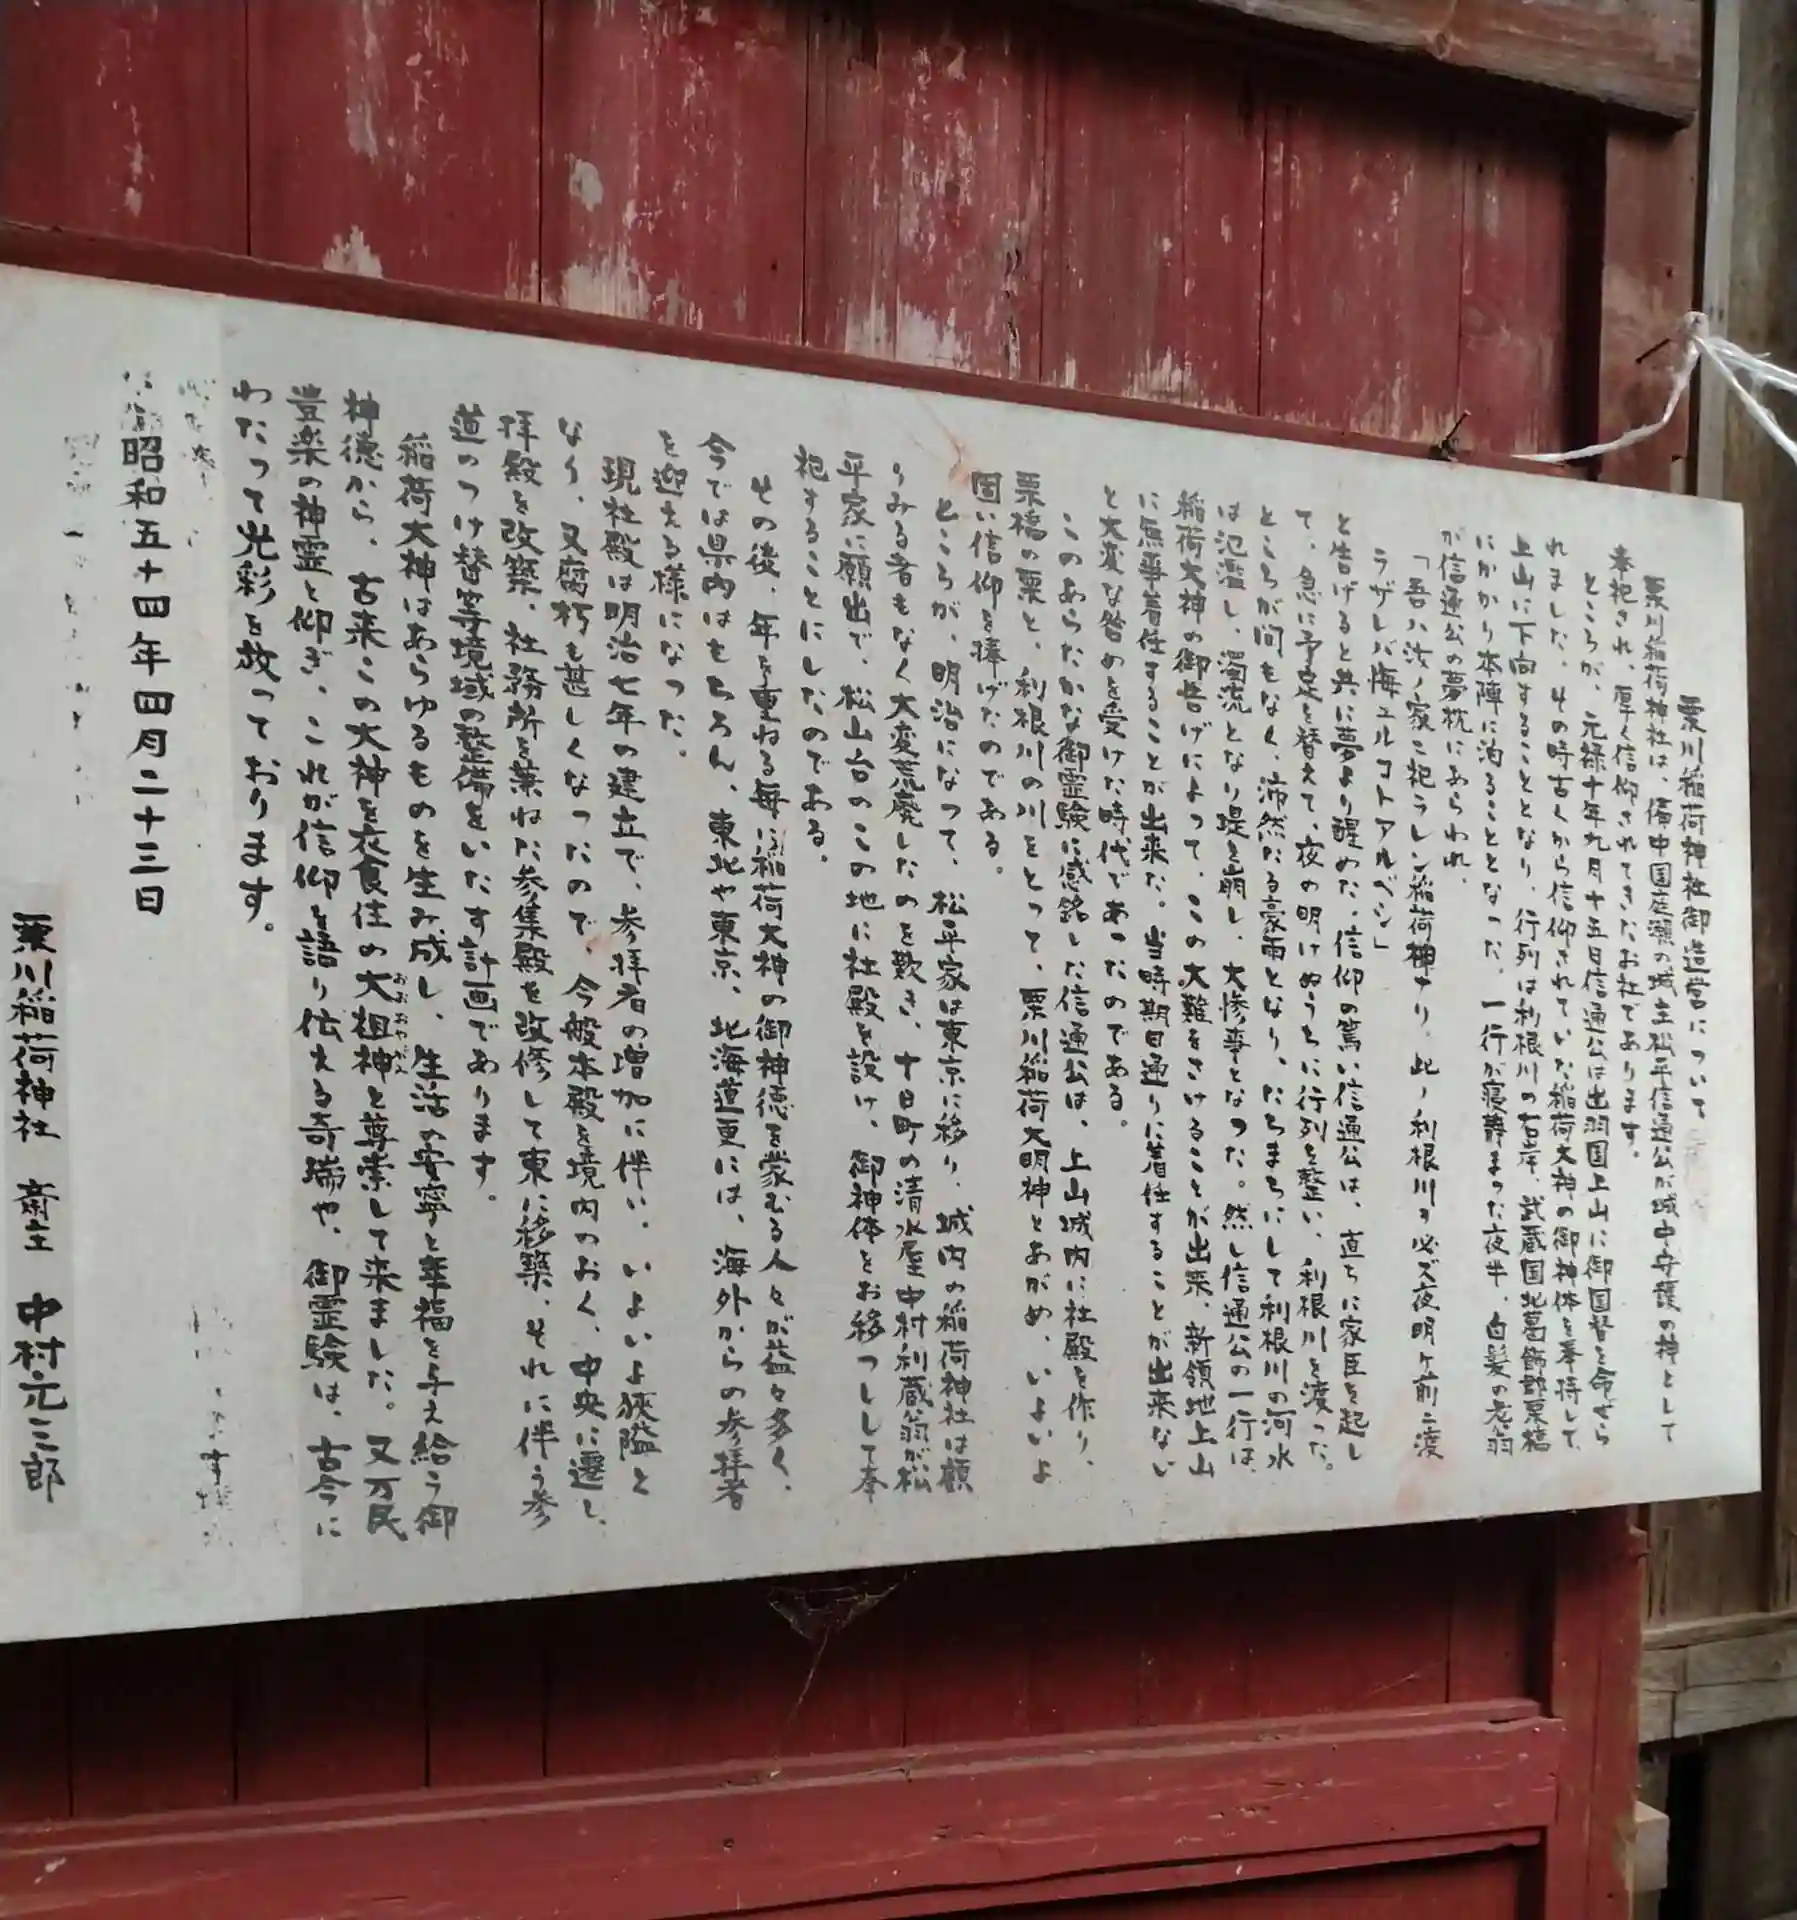 栗川稲荷神社御造営について
栗川稲荷神社は、備中国庭瀬の城主松平信通公が城中守護の神として
奉祀され、厚く信仰されてきたお社であります。
ところが、元禄十年九月十五日信通公は出羽国上山に御国替を命ぜら
れました。その時古くから信仰されていた稲荷大神の御神体を奉持して、
上山に下向することとなり、行列は利根川の右岸、武蔵国北葛飾郡栗橋
にかかり本陣に泊ることとなった。一行が寝静まった夜半、白髪の老翁
が信通公の夢枕にあらわれ、
「吾ハ汝ノ家ニ祀ラレン稲荷神ナリ。此ノ利根川ヲ必ズ夜明ケ前ニ渡
ラザレバ悔ユルコトアルベシ」
と告げると共に夢より醒めた。信仰の篤い信通公は、直ちに家臣を起し
て、急に予定を替えて、夜の明けぬうちに行列を整い、利根川を渡った。
ところが間もなく、沛然たる豪雨となり、たちまちにして利根川の河水
は氾濫し、濁流となり堤を崩し、大惨事となった。然し信通公の一行は、
稲荷大神の御告げによって、この大難をさけることが出来、新領地上山
に無事着任することが出来た。当時期日通りに着任することが出来ない
と大変な咎めを受けた時代であったのである。
このあらたかな御霊験に感銘した信通公は、上山城内に社殿を作り、
栗橋の栗と、利根川の川をとって、栗川稲荷大明神とあがめ、いよいよ
固い信仰を捧げたのである。
ところが、明治になって、松平家は東京に移り、城内の稲荷神社は顧
りみる者もなく大変荒廃したのを歎き、十日町の清水屋中村利蔵翁が松
平家に願出で、松山台のこの地に社殿を設け、御神体をお移しして奉
祀することにしたのである。
その後、年を重ねる毎に稲荷大神の御神徳を蒙むる人々が益々多く、
今では県内はもちろん、東北や東京、北海道更には、海外からの参拝者
を迎える様になった。
現社殿は明治七年の建立で、参拝者の増加に伴い、いよいよ狭隘と
なり、又腐朽も甚しくなったので、今般本殿を境内のおく、中央に遷し、
拝殿を改築、社務所を兼ねた参集殿を改修して東に移築、それに伴う参
道のつけ替等境域の整備をいたす計画であります。
稲荷大神はあらゆるものを生み成し、生活の安寧と幸福を与え給う御
神徳から、古来この大神を衣食住の大祖神と尊崇して来ました。又万民
豊楽の神霊と仰ぎ、これが信仰を語り伝える奇瑞や、御霊験は、古今に
わたって光彩を放っております。
昭和五十四年四月二十三日
栗川稲荷神社 斎主 中村元三郎